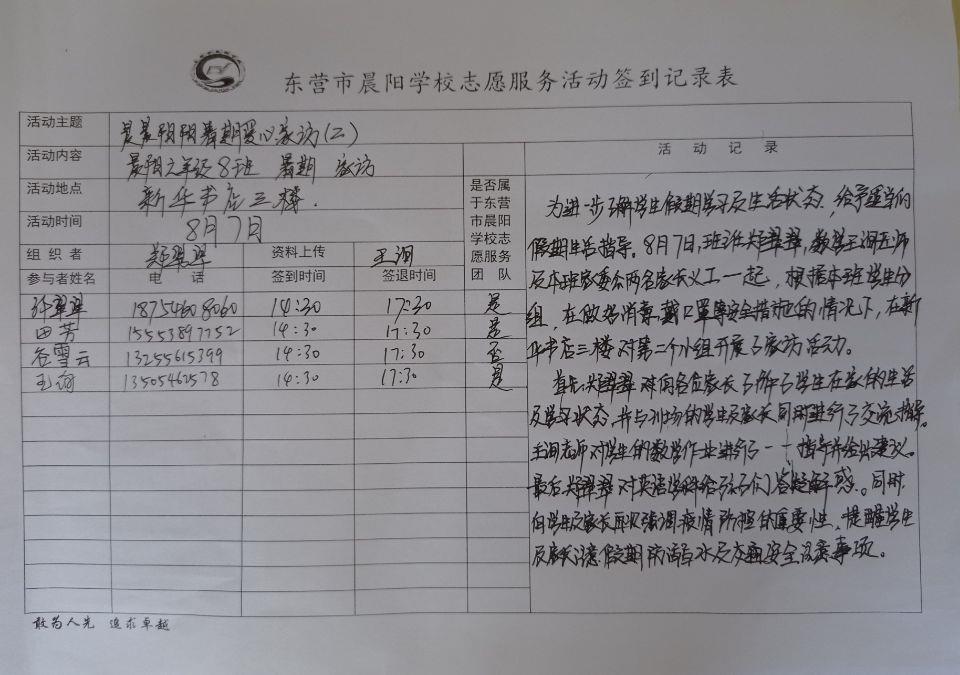 东营市晨阳学校志愿服务活动签到记录表
活动主题 晨晨阳阳暑期暖心家访(二)
活动内容 晨阳六年级8班 暑期 家访
活动地点 新华书店三楼.
活动时间 8月7日
组织者 郑翠翠 资料上传 王洵
参与者姓名 电话 签到时间 签退时间
是否属
于东营
市晨阳
学校志
愿服务
团队
翠翠 18754608060 14:30 17:30 是
田芳 15553897752 14:30 17:30 是
谷雪云 13255615399 14:30 17:30 否
王洵 13505462578 14:30 17:30 是
活动记录
为进一步了解学生假期学习及生活状态,给予适当的
假期生活指导。8月7日,班主任郑翠翠,数学王洵老师
及本班家委会两名家长义工一起,根据本班学生分
组,在做好消毒,戴口罩等安全措施的情况下,在新
华书店三楼对第二个小组开展了家访活动。
首先郑翠翠对向各位家长了解了学生在家的生活
及学习状态,并与到场的学生及家长同时进行了交流指导。
王洵老师对学生的数学作业进行了一一指导并给出建议。
最后郑翠翠对英语学科给孩子们答疑解惑。同时
向学生及家长再次强调疫情防控的重要性,提醒学生
及家长注意假期防溺水及交通安全注意事项。
敢为人先 追求卓越